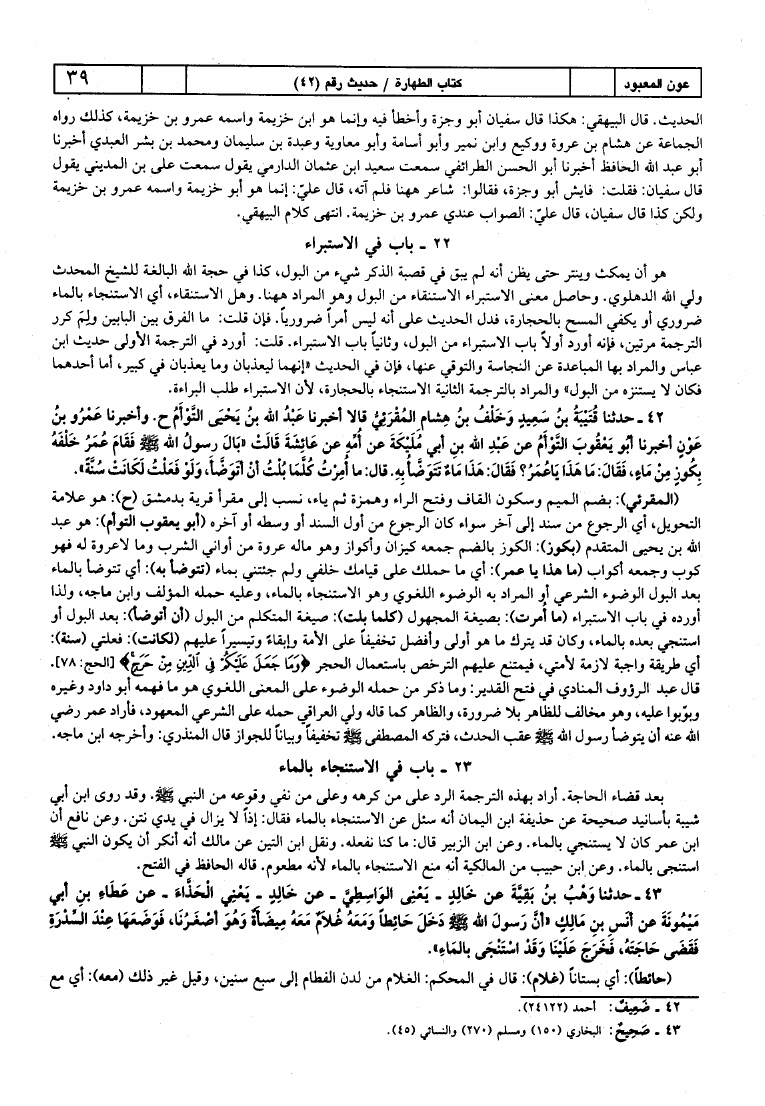 عون المعبود
كتاب الطهارة / حديث رقم (٤٢)
٣٩
الحديث. قال البيهقي: هكذا قال سفيان أبو وجزة وأخطأ فيه وإنما هو ابن خزيمة واسمه عمرو بن خزيمة، كذلك رواه
الجماعة عن هشام بن عروة ووكيع وابن نمير وأبو أسامة وأبو معاوية وعبدة بن سليمان ومحمد بن بشر العبدي أخبرنا
أبو عبد الله الحافظ أخبرنا أبو الحسن الطرائفي سمعت سعيد ابن عثمان الدارمي يقول سمعت علي بن المديني يقول
قال سفيان: فقلت: فايش أبو وجزة، فقالوا: شاعر ههنا فلم آته، قال عليّ: إنما هو أبو خزيمة واسمه عمرو بن خزيمة
ولكن كذا قال سفيان، قال عليّ: الصواب عندي عمرو بن خزيمة. انتهى كلام البيهقي.
٢٢ - باب في الاستبراء
هو أن يمكث وينتر حتى يظن أنه لم يبق في قصبة الذكر شيء من البول، كذا في حجة الله البالغة للشيخ المحدث
ولي الله الدهلوي. وحاصل معنى الاستبراء الاستنقاء من البول وهو المراد ههنا. وهل الاستنقاء، أي الاستنجاء بالماء
ضروري أو يكفي المسح بالحجارة، فدل الحديث على أنه ليس أمراً ضرورياً. فإن قلت: ما الفرق بين البابين ولِمَ كرر
الترجمة مرتين، فإنه أورد أولاً باب الاستبراء من البول، وثانياً باب الاستبراء. قلت: أورد في الترجمة الأولى حديث ابن
عباس والمراد بها المباعدة عن النجاسة والتوقي عنها، فإن في الحديث «إنهما ليعذبان وما يعذبان في كبير، أما أحدهما
فكان لا يستنزه من البول» والمراد بالترجمة الثانية الاستنجاء بالحجارة، لأن الاستبراء طلب البراءة.
٤٢ - حدثنا قُتَيْبَةُ بنُ سَعِيدٍ وَخَلْفُ بنُ هِشام المُقْرَئِيُّ قالا أخبرنا عَبْدُ الله بنُ يَحْيَى التَّوْأَمُ ح. وأخبرنا عَمْرُو بنُ
عَوْنٍ أخبرنا أبُو يَعْقُوبَ التَّوْأَمُ عن عَبْدِ الله بن أبي مُلَيْكَةَ عن أُمِّهِ عن عَائِشَةَ قالَتْ «بَالَ رسولُ الله ﷺ فَقَامَ عُمَرُ خَلْفَهُ
بِكُوزٍ مِنْ مَاءٍ، فَقَالَ: مَا هَذَا يَاعُمَرُ؟ فَقَالَ: هَذَا مَاءٌ تَتَوَضَّأُ بِهِ. قال: ما أُمِرْتُ كُلَّمَا بُلْتُ أنْ أتَوَضَّأَ، وَلَوْ فَعَلْتُ لَكَانَتْ سُنَّةً».
(المقرئي): بضم الميم وسكون القاف وفتح الراء وهمزة ثم ياء، نسب إلى مقرأ قرية بدمشق (ح): هو علامة
التحويل، أي الرجوع من سند إلى آخر سواء كان الرجوع من أول السند أو وسطه أو آخره (أبو يعقوب التوأم): هو عبد
الله بن يحيى المتقدم (بكوز): الكوز بالضم جمعه كيزان وأكواز وهو ماله عروة من أواني الشرب وما لاعروة له فهو
كوب وجمعه أكواب (ما هذا يا عمر): أي ما حملك على قيامك خلفي ولم جئتني بماء (تتوضأ به): أي تتوضأ بالماء
بعد البول الوضوء الشرعي أو المراد به الوضوء اللغوي وهو الاستنجاء بالماء، وعليه حمله المؤلف وابن ماجه، ولذا
أورده في باب الاستبراء (ما أمرت): بصيغة المجهول (كلما بلت): صيغة المتكلم من البول (أن أتوضأ): بعد البول أو
استنجي بعده بالماء، وكان قد يترك ما هو أولى وأفضل تخفيفاً على الأمة وإبقاءً وتيسيراً عليهم (لكانت): فعلتي (سنة):
أي طريقة واجبة لازمة لأمتي، فيمتنع عليهم الترخص باستعمال الحجر ﴿وَمَا جَعَلَ عَلَيْكُمْ فِي ٱلدِّينِ مِنْ حَرَجٍ﴾ [الحج: ٧٨].
قال عبد الرؤوف المنادي في فتح القدير: وما ذكر من حمله الوضوء على المعنى اللغوي هو ما فهمه أبو داود وغيره
وبوّبوا عليه، وهو مخالف للظاهر بلا ضرورة، والظاهر كما قاله ولي العراقي حمله على الشرعي المعهود، فأراد عمر رضي
الله عنه أن يتوضأ رسول الله ﷺ عقب الحدث، فتركه المصطفى ﷺ تخفيفاً وبياناً للجواز قال المنذري: وأخرجه ابن ماجه.
٢٣ - باب في الاستنجاء بالماء
بعد قضاء الحاجة. أراد بهذه الترجمة الرد على من كرهه وعلى من نفى وقوعه من النبي ﷺ. وقد روى ابن أبي
شيبة بأسانيد صحيحة عن حذيفة ابن اليمان أنه سئل عن الاستنجاء بالماء فقال: إذاً لا يزال في يدي نتن. وعن نافع أن
ابن عمر كان لا يستنجي بالماء. وعن ابن الزبير قال: ما كنا نفعله. ونقل ابن التين عن مالك أنه أنكر أن يكون النبي ﷺ
استنجى بالماء. وعن ابن حبيب من المالكية أنه منع الاستنجاء بالماء لأنه مطعوم. قاله الحافظ في الفتح.
٤٣ - حدثنا وَهْبُ بنُ بَقِيَّةَ عن خَالِدٍ - يَعْنِي الوَاسِطِيَّ - عن خَالِدٍ - يَعْنِي الْحَذَّاءَ - عن عَطَاءِ بنِ أبي
مَيْمُونَةَ عن أنَسِ بنِ مَالِكٍ «أنَّ رَسولَ الله ﷺ دَخَلَ حَائِطاً وَمَعَهُ غُلاَمٌ مَعَهُ مِيضَأَةٌ وَهُوَ أصْغَرُنَا، فَوَضَعَهَا عِنْدَ السِّدْرَةِ
فَقَضَى حَاجَتَهُ، فَخَرَجَ عَلَيْنَا وَقَدْ اسْتَنْجَى بالمَاءِ».
(حائطاً): أي بستاناً (غلام): قال في المحكم: الغلام من لدن الفطام إلى سبع سنين، وقيل غير ذلك (معه): أي مع
٤٢ - ضَعِيفٌ: أحمد (٢٤١٢٢).
٤٣ - صَحِيحٌ: البخاري (١٥٠) ومسلم (٢٧٠) والنسائي (٤٥).